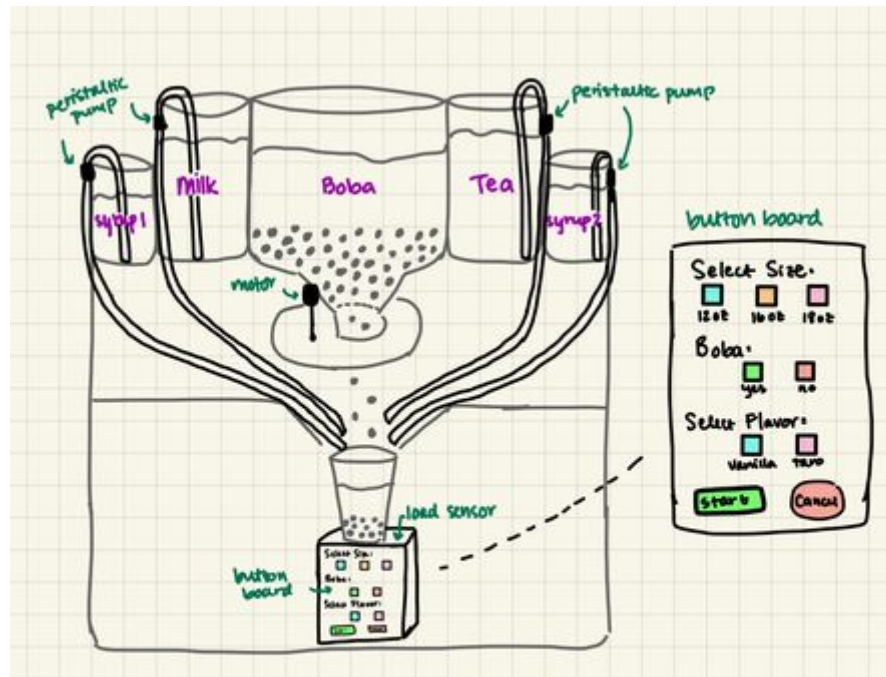 peristaltic pump
peristaltic pump
Milk
Boba
Tea
syrup1
syrup2
motor
load sensor
button board
Select Size:
Boba:
Select Flavor:
button board
Select Size:
12oz 16oz 18oz
Boba:
yes no
Select Flavor:
Vanilla Taro
Start Cancel